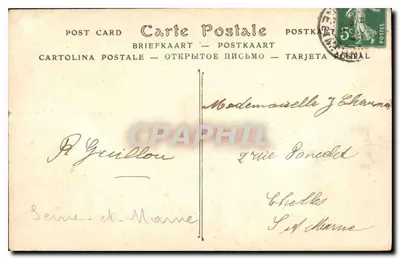 POST CARD Carte Postale POSTKA
BRIEFKAART — POSTKAART
CARTOLINA POSTALE — ОТКРЫТОЕ ПИСЬМО — TARJETA POSTAL
5c
POSTES
Mademoiselle J
CARTHAPHILE
R Guillou
2 rue Poncelet
Chelles
S et Marne
Seine-et-Marne